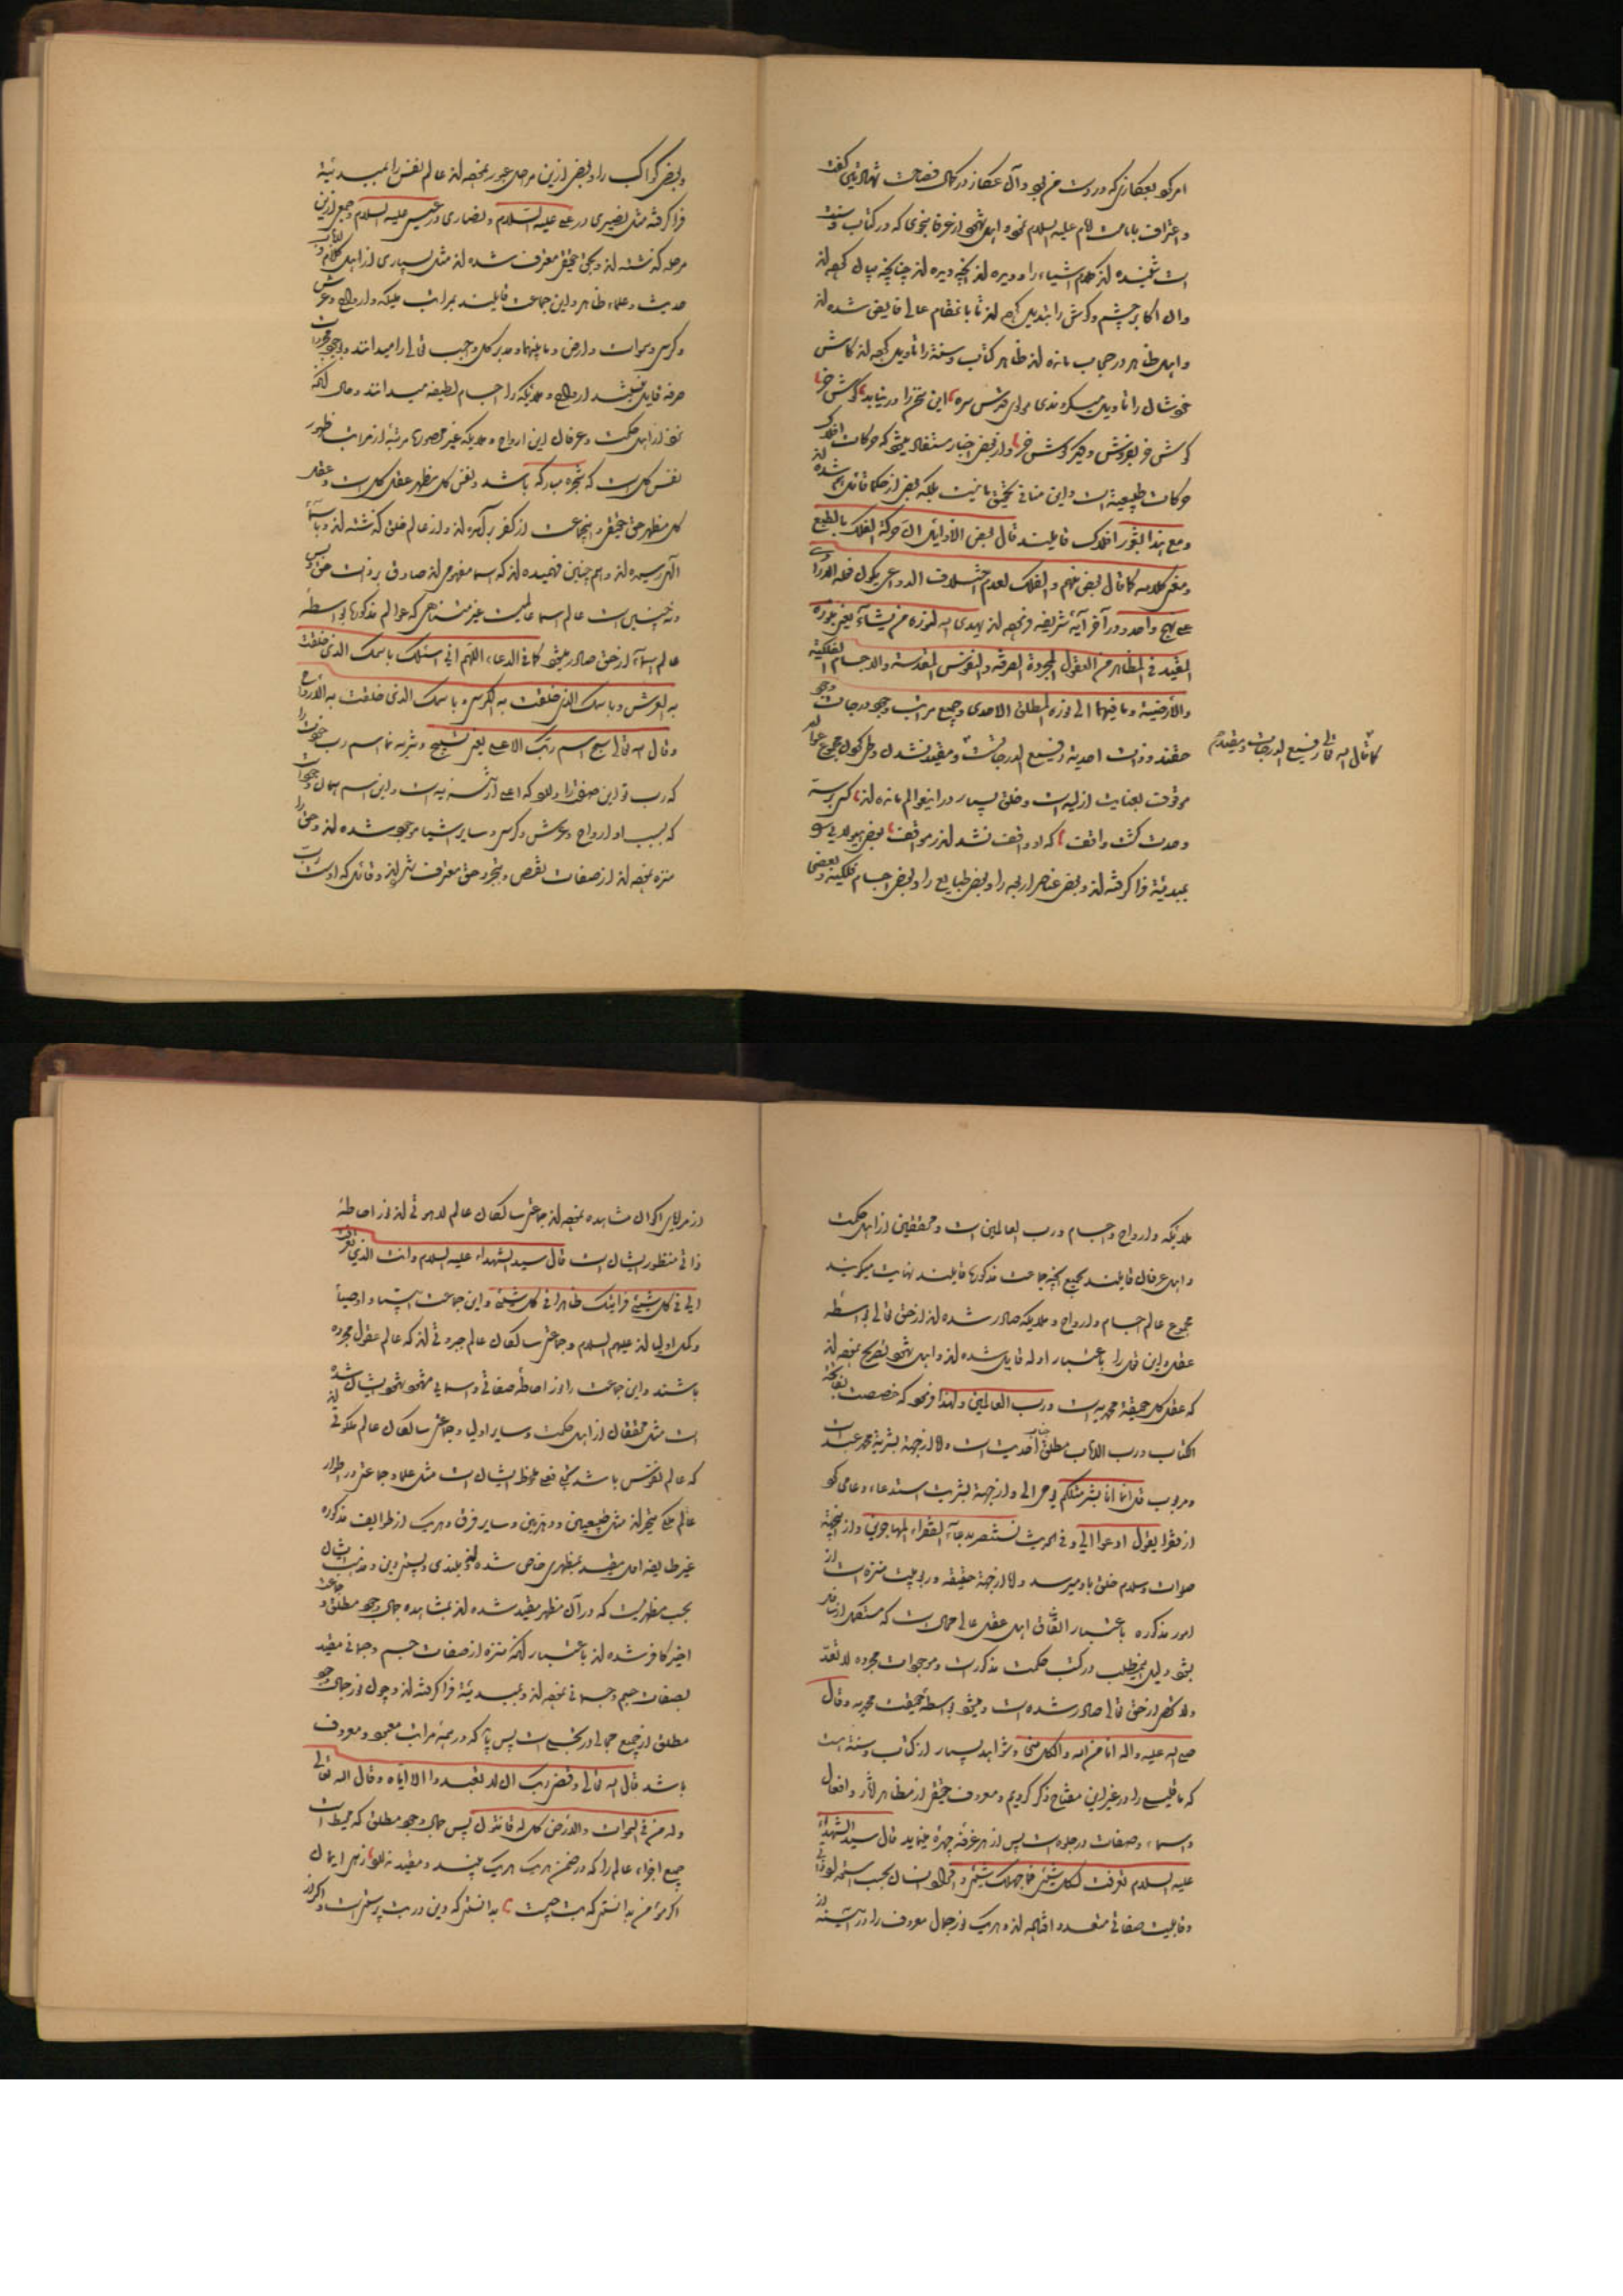 امر کو بعکازی که در دست من بود و آن عکاز در کمال فصاحت شهادتین گفت
و اعتراف بامامت امام علیه السلام نمود و اهل شهود از عرفا بنحوی که در کتاب و سنت
است شنیده اند کلام اشیاء را و دیده اند آنچه دیده اند چنانچه بیان کرده اند
و ان اکابر چشم و گوش را تبدیل کرده اند تا بانمقام عالی فایض شده اند
و اهل ظاهر در حجاب مانده اند ظاهر کتاب و سنة را تاویل کرده اند کاش
خودشان را تاویل میکردندی مولوی قدس سره این سخن را در نیابد گوش خر
گوش خر بفروش و دیگر گوش خر و از بعض اخبار مستفاد میشود که حرکات افلاک
حرکات طبیعیة است و این منافی تحقیق ما نیست بلکه بعض از حکما قائل شده اند
و مع هذا بشعور افلاک قایلند قال بعض الاوایل ان حرکة الفلک بالطبع
و معنی کلامه کما قال بعض منهم و الفلک لعدم اختلاف الدواعی یکون فعله
علی نهج واحد و در آخر آیه شریفه فرموده اند یهدی الله لنوره من یشاء یعنی بنوره
المقید فی المظاهر من العقول المجردة الصرفة و النفوس المقدسة و الاجسام الفلکیة
و الارضیة و ما فیهما الی نوره المطلق الاحدی و جمیع مراتب وجود درجات وجود
حقند و ذات احدیة رفیع الدرجاتست و مقید نشدن و طی کردن مجموع عوالم
کما قال الله تعالی رفیع الدرجات و مقید
موقوف بعنایت ازلیه است و خلق بسیار در این عوالم مانده اند
وحدت کشت واقف که او واقف نشد اندر مواقف بعض هیولای را
بمبدئیة فرا گرفته اند و بعض عناصر اربعه را و بعض طبایع را و بعض اجسام فلکیة و بعضی
و بعض کواکب را و بعض ازین مرحله عبور نموده اند عالم نفس را بمبدئیة
فرا گرفته مثل نصیری در علی علیه السلام و نصاری در عیسی علیه السلام و جمع ازین
مرحله گذشته اند و بحق حقیقی معترف شده اند مثل بسیاری از اهل کلام و
حدیث و علماء ظاهر و این جماعت قایلند بمراتب ملیکه و ارواح و عرش
و کرسی و سموات و ارض و ما بینهما و مدبر کل واجب تعالی را میدانند و بوجود مجردات
صرفه قایل نیستند ارواح و ملایکه را اجسام لطیفه میدانند و حال آنکه
نزد اهل حکمت و عرفان این ارواح و ملایکه غیر محصورها مرتبة از مراتب ظهور
نفس کل است که شجره مبارکه باشد و نفس کل مظهر عقل کل است و عقل
کل مظهر حق حقیقی و اینجماعت از کفر برآمده اند و از عالم خلق گذشته اند و باسماء
الهی رسیده اند و هم چنین فهمیده اند که اسما مفهوم اند صادق بر ذات حق و بس
و نه چنین است عالم اسما عالمیست غیر متناهی که عوالم مذکورها بواسطه
عالم اسماء از حق صادر میشود کما فی الدعاء اللهم انی اسئلک باسمک الذی خلقت
به العرش و باسمک الذی خلقت به الکرسی و باسمک الذی خلقت به الارواح
و قال الله تعالی سبح اسم ربک الاعلی یعنی تسبیح و تنزیه نما اسم رب خودت را
که رب تو این صفت را دارد که اعلی از است و این اسم همان
که بسبب او ارواح و عرش و کرسی و سایر اشیا موجود شده اند و حق را
منزه نموده اند از صفات نقص و بتجرد حق معترف شده اند و قائل که اوست رب
ملایکه و ارواح و اجسام و رب العالمین است و محققین از اهل حکمت
و اهل عرفان قایلند بجمیع آنچه جماعت مذکورها قایلند نهایت میگویند
مجموع عالم اجسام و ارواح و ملایکه صادر شده اند از حق تعالی بواسطه
عقل و این قول را باعتبار ادله قایل شده اند و اهل شهود تصریح نموده اند
که عقل کل حقیقة محمدیه است و رب العالمین و لهذا فرمود که خصصت بفاتحة
الکتاب و رب الارباب مطلق جناب احدیت است و الا از جهة بشریة محمد عبد است
و مربوب قل انما انا بشر مثلکم یوحی الی و از جهة بشریت استدعاء دعا می کرد
از فقرا یقول ادعوا الی و فی الحدیث نستنصر بدعاء الفقراء المهاجرین و از اینجهة
صلوات و سلام خلق باو میرسد و الا از جهة حقیقه و ربوبیت منزه است از
امور مذکوره باعتبار اتفاق اهل عقل عالی محال است که مستکمل از سافل
شود و دلیل اینمطلب در کتب حکمت مذکور است و موجودات مجرده لا تعد
و لا تحصی از حق تعالی صادر شده است و میشود بواسطه حقیقت محمدیه و قال
صلی الله علیه و آله انا من الله و الکل منی و شواهد بسیار از کتاب و سنة هست
که ما قلیلی را در غیر این مفتاح ذکر کردیم و معروف حقیقی از مظاهر آثار و افعال
و اسماء و صفات در جلوه است پس از هر غرفة چهره مینماید قال سید الشهداء
علیه السلام تعرفت لکل شیئ فما جهلک شیئ و افراد انسان بحسب استعداد ذاتی
و قابلیت صفاتی متعدد افتاده اند و هریک نور جمال معروف را در آئینه از
از مرایای اکوان مشاهده نموده اند جماعتی سالکان عالم لاهوتی اند نور احاطه
ذاتی منظور ایشان است قال سید الشهداء علیه السلام و انت الذی تعرفت
الی فی کل شیئ فرایتک ظاهرا فی کل شیئ و این جماعت انبیاء و اوصیا
و کمل اولیا اند علیهم السلام و جماعتی سالکان عالم جبروتی اند که عالم عقول مجرده
باشند و این جماعت را نور احاطه صفاتی و اسمایی مشهود شهود ایشان شده
است مثل محققان از اهل حکمت و سایر اولیا و جماعتی سالکان عالم ملکوتی اند
که عالم نفوس باشد تجلی فعلی ملحوظ ایشان است مثل علما و جماعتی در اطوار
عالم ملک متحیرند مثل طبیعیین و دهریین و سایر فرق و هریک از طوایف مذکوره
غیر طایفه اولی مقید بمظهری خاص شده اند و بلندی و پستی دین و مذهب ایشان
بحسب مظهریست که در آن مظهر مقید شده اند بمشاهده جمال وجود مطلق و جماعت
اخیر کافر شده اند باعتبار آنکه منزه از صفات جسم و جسمانی مقید
بصفات جسم و جسمانی نموده اند و بمبدئیة فرا گرفته اند و چون نور جمال وجود
مطلق از جمیع مجالی در تجلی است پس باید که در همه مراتب معبود و معروف
باشد قال الله تعالی و قضی ربک ان لا تعبدوا الا ایاه و قال الله تعالی
و له من فی السموات و الارض کل له قانتون پس جمال وجود مطلق که محیط است
جمیع اجزاء عالم را که در ضمن هریک هریک بیند و مقید نداند زهی ایمان
اگر مؤمن بدانستی که بت چیست بدانستی که دین در بت پرستی است و اگر از